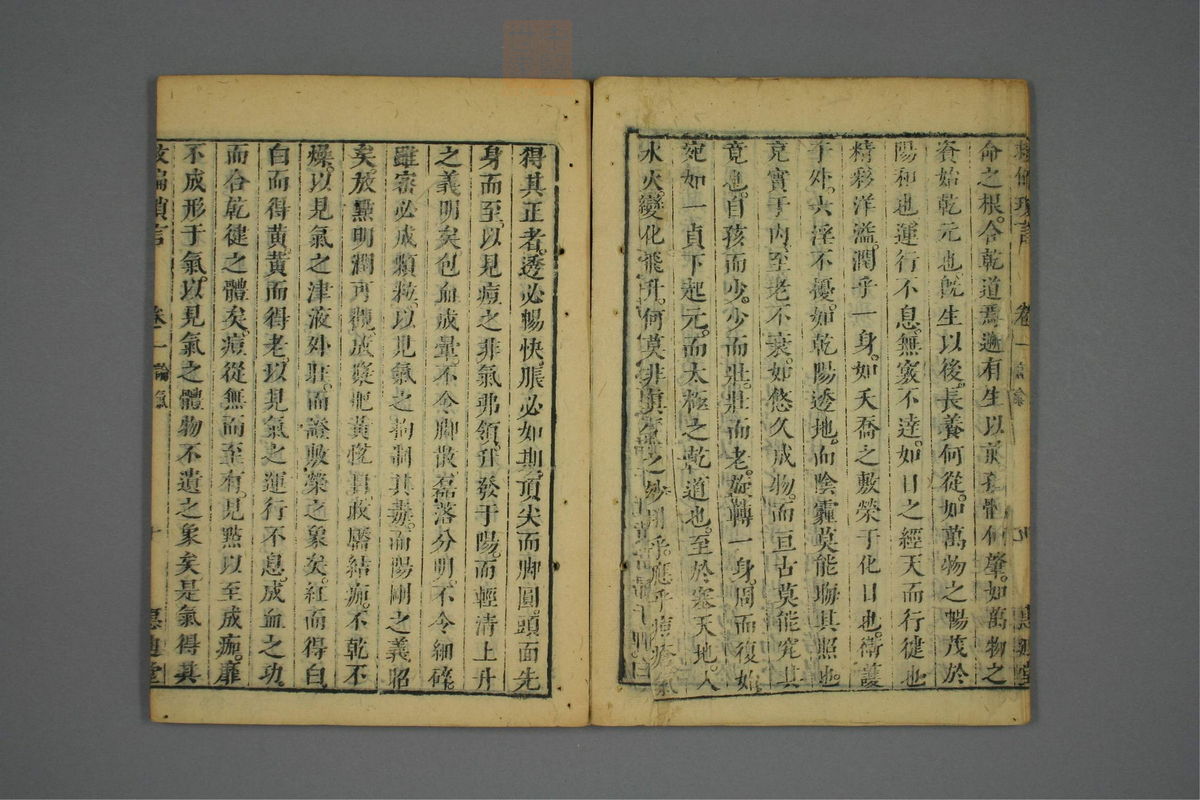 命之根。合乾道焉。遡有生以前。秉體何肇。如萬物之
資始乾元也。旣生以後。長養何從。如萬物之暢茂於
陽和也。運行不息。無竅不達。如日之經天而行健也。
精彩洋溢。潤乎一身。如夭喬之敷榮于化日也。衛護
于外。六淫不擾。如乾陽透地。而陰霾莫能翳其照也。
克實于內。至老不衰。如悠久成物。而亘古莫能究其
竟也。自孩而少。少而壯。壯而老。旋轉一身。周而復始。
宛如一貞下起元。而太極之乾道也。至於塞天地。人
水火。變化飛升。何莫非眞氣之妙用乎。應乎痘瘡。氣
得其正者。透必暢快。脹必如期。頂尖而脚圓。頭面先
身而至。以見痘之非氣弗領。升發于陽。而輕清上升
之義明矣。包血成暈。不令脚散。磊落分明。不令細碎。
雖密必成顆粒。以見氣之拘制其毒。而陽剛之義昭
矣。放點明潤可觀。放漿肥黃
結痂。不乾不
燥。以見氣之津液外莊。而證敷榮之象矣。紅而得白。
白而得黃。黃而得老。以見氣之運行不息。成血之功。
而合乾健之體矣。痘從無而至有。見點以至成痂。靡
不成形于氣。以見氣之體物不遺之象矣。是氣得其
救偏瑣言 卷一 論氣 十 惠迪堂